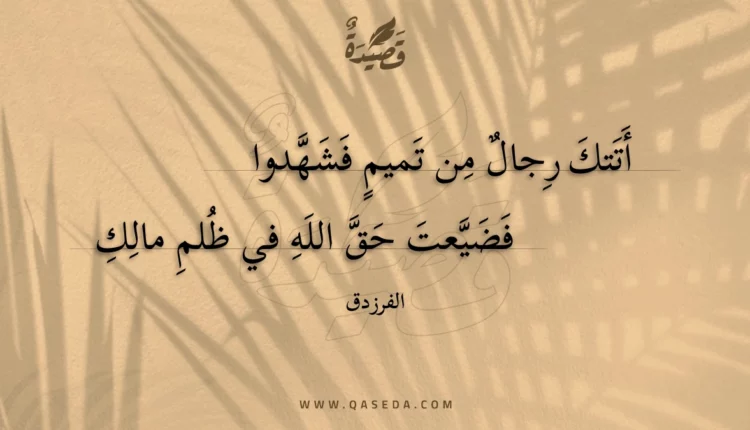 قَصِيْدَةٌ
أَتَتكَ رِجالٌ مِن تَميمٍ فَشَهَّدوا
فَضَيَّعتَ حَقَّ اللَهِ في ظُلمِ مالِكِ
الفرزدق
WWW.QASEDA.COM